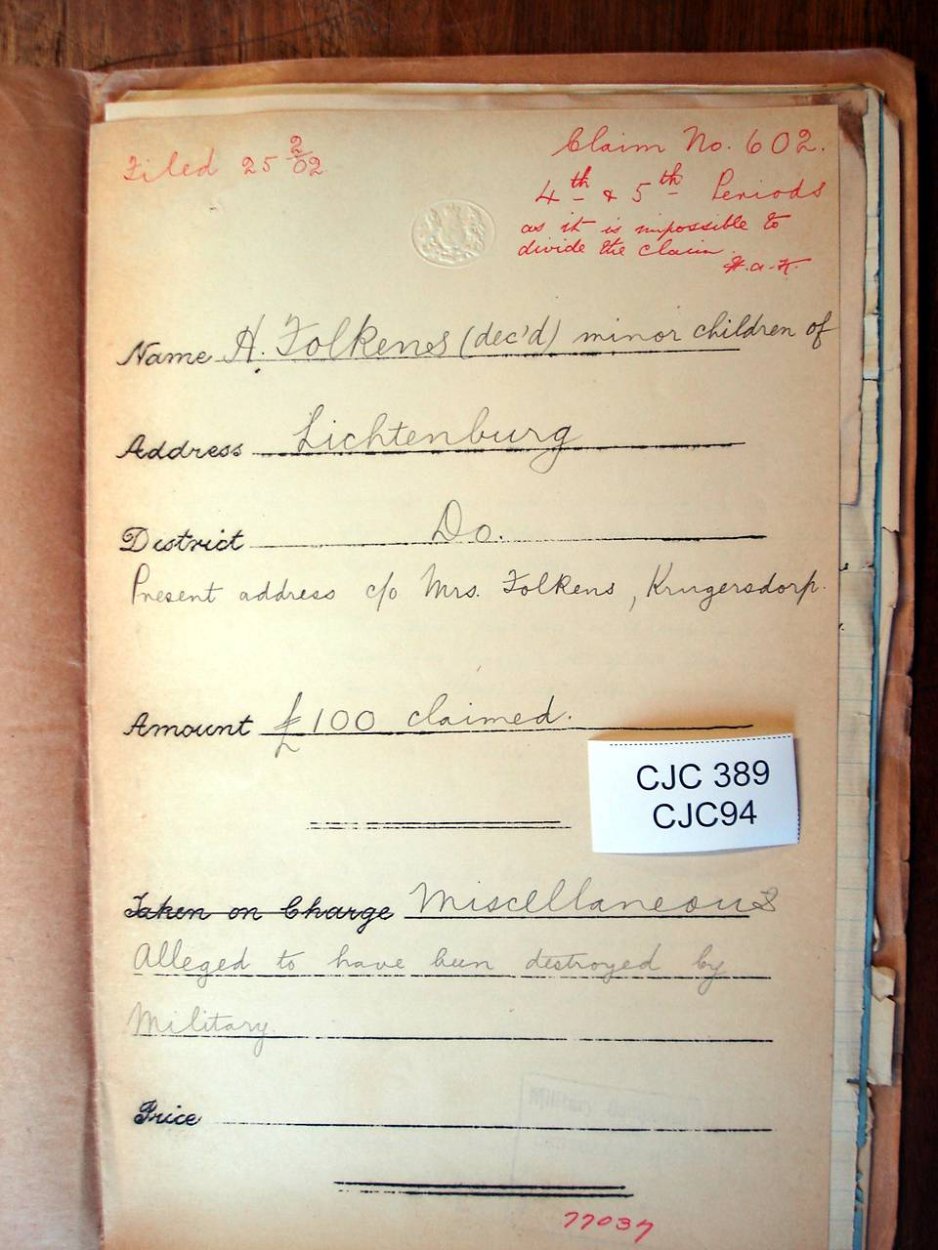 Filed 25 2/02
Claim No. 602.
4th & 5th Periods
as it is impossible to
divide the claim.
H.a.H.
Name H. Folkenes (dec'd) minor children of
Address Lichtenburg
District Do.
Present address c/o Mrs. Folkens, Krugersdorp.
Amount £100 claimed.
CJC 389
CJC94
Taken on Charge Miscellaneous
Alleged to have been destroyed by
Military.
Price
77037